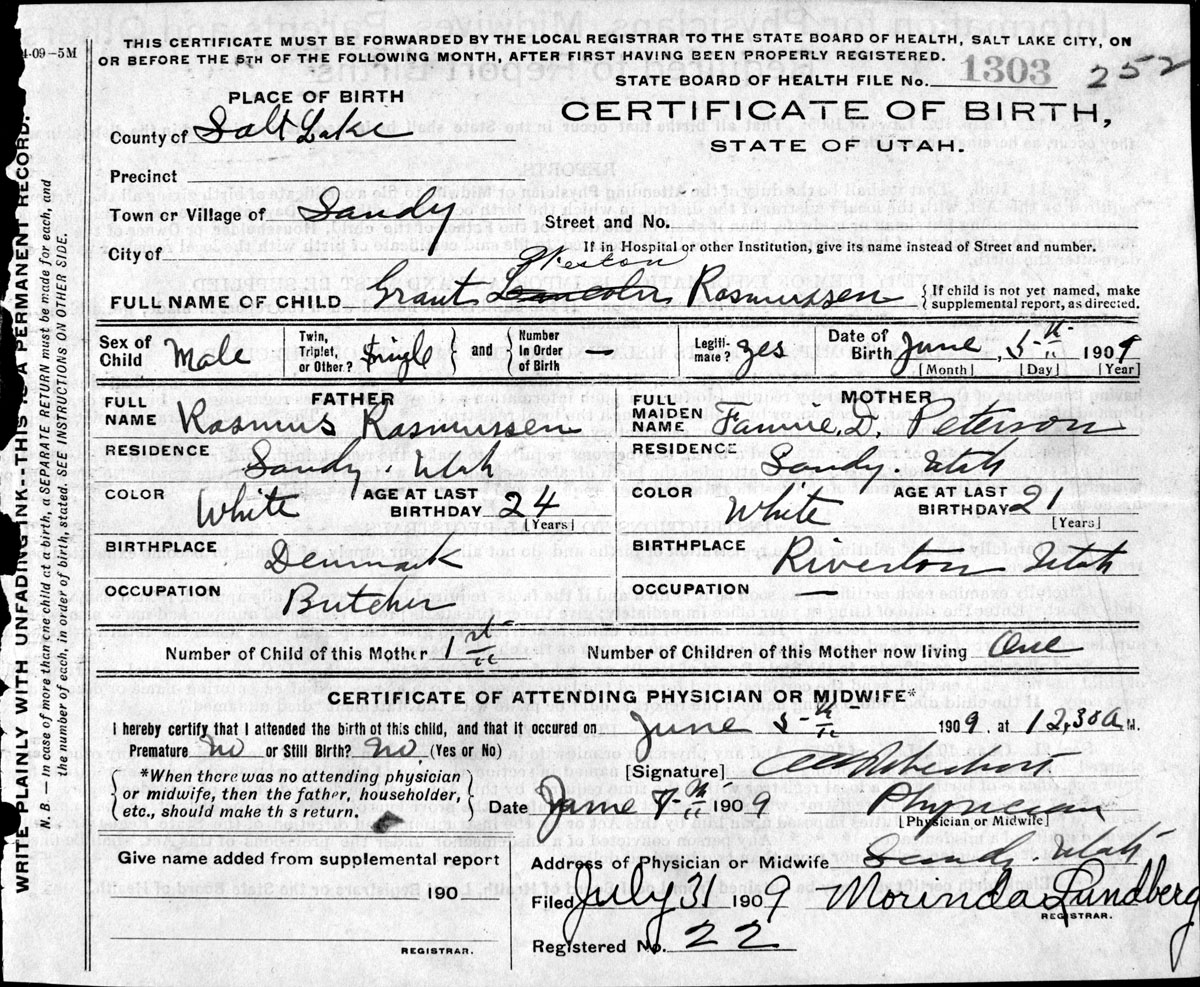 4-09-5M
THIS CERTIFICATE MUST BE FORWARDED BY THE LOCAL REGISTRAR TO THE STATE BOARD OF HEALTH, SALT LAKE CITY, ON
OR BEFORE THE 5TH OF THE FOLLOWING MONTH, AFTER FIRST HAVING BEEN PROPERLY REGISTERED.
STATE BOARD OF HEALTH FILE No. 1303 252
PLACE OF BIRTH
CERTIFICATE OF BIRTH,
STATE OF UTAH.
County of Salt Lake
Precinct
Town or Village of Sandy Street and No.
City of If in Hospital or other Institution, give its name instead of Street and number.
FULL NAME OF CHILD Grant Lincoln Rasmussen { If child is not yet named, make
supplemental report, as directed.
Sex of Child Male Twin, Triplet, or Other? Single } and { Number In Order of Birth — Legiti-mate? yes Date of Birth June, 5th 1909
[Month] [Day] [Year]
FATHER
FULL NAME Rasmus Rasmussen
RESIDENCE Sandy. Utah
COLOR White AGE AT LAST BIRTHDAY 24
[Years]
BIRTHPLACE Denmark
OCCUPATION Butcher
MOTHER
FULL MAIDEN NAME Fannie. D. Peterson
RESIDENCE Sandy Utah
COLOR White AGE AT LAST BIRTHDAY 21
[Years]
BIRTHPLACE Riverton Utah
OCCUPATION —
Number of Child of this Mother 1st Number of Children of this Mother now living One
CERTIFICATE OF ATTENDING PHYSICIAN OR MIDWIFE*
I hereby certify that I attended the birth of this child, and that it occured on June 5th 1909. at 12,30a M.
Premature No or Still Birth? No (Yes or No)
{ *When there was no attending physician
or midwife, then the father, householder,
etc., should make th s return. }
[Signature] Robertson
Date June 1909 Physician
[Physician or Midwife]
Give name added from supplemental report
190
REGISTRAR.
Address of Physician or Midwife Sandy. Utah
Filed July 31 1909 Morinda Lundberg
REGISTRAR.
Registered No. 22
WRITE PLAINLY WITH UNFADING INK--THIS IS A PERMANENT RECORD.
N. B. — In case of more than one child at a birth, a SEPARATE RETURN must be made for each, and
the number of each, in order of birth, stated. SEE INSTRUCTIONS ON OTHER SIDE.